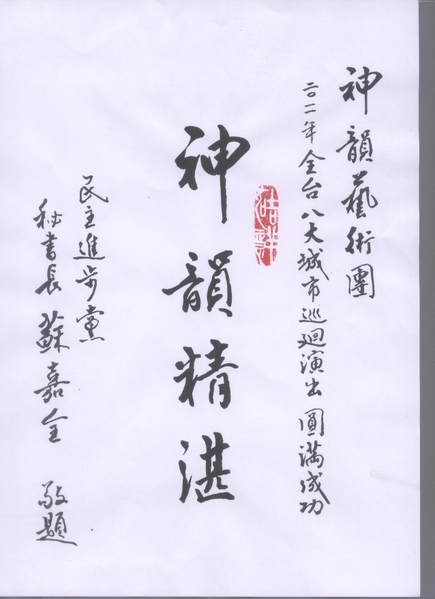 神韻藝術團
二〇一一年全台八大城市巡迴演出圓滿成功
神韻精湛
民主進步黨
秘書長 蘇嘉全 敬題